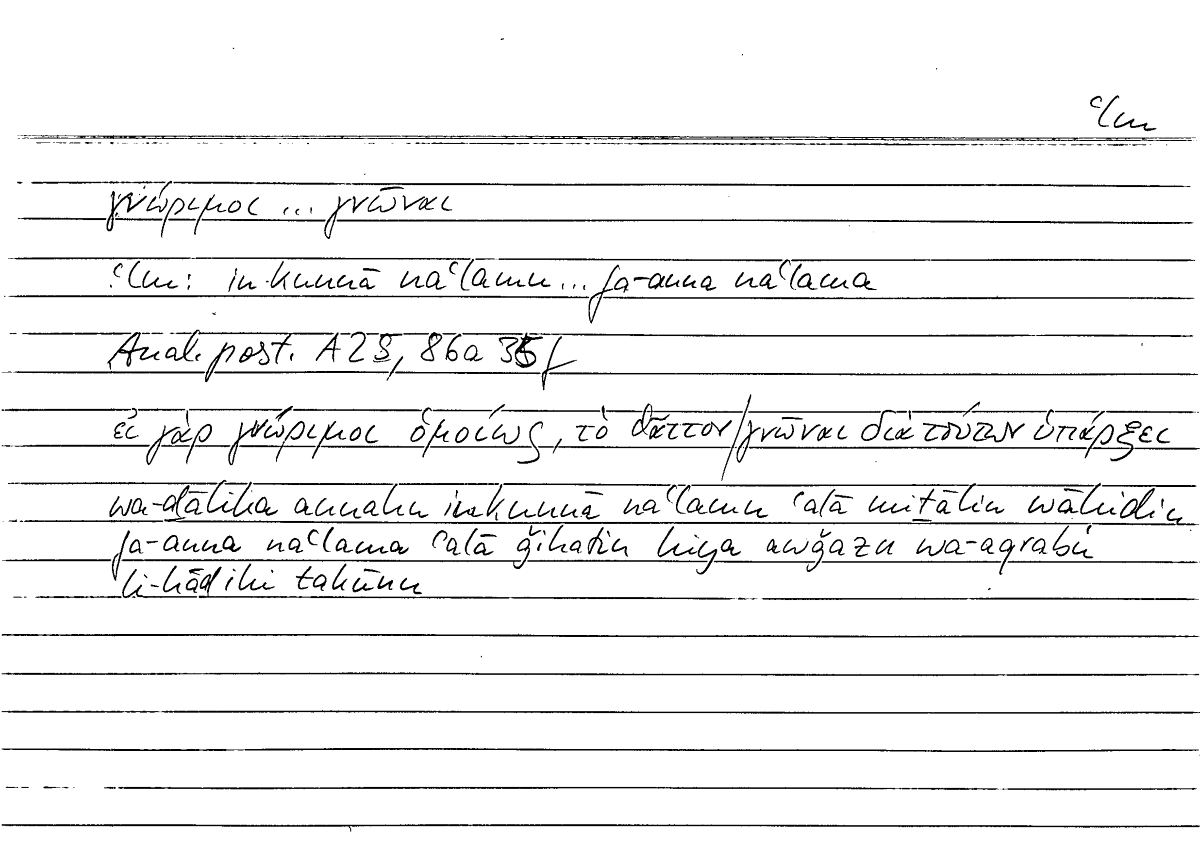 ʿlm
γνώριμοι ... γνῶναι
ʿlm: in-kunnā naʿlamu... fa-anna naʿlama
Anal. post. A 25, 86a 35 f
εἰ γὰρ γνώριμοι ὁμοίως, τὸ θᾶττον/γνῶναι διὰ τούτων ὑπάρξει
wa-ḏālika annahu in-kunnā naʿlamu ʿalā miṯālin wāḥidin
fa-anna naʿlama ʿalā ǧihatin hiya awǧazu wa-aqrabu
li-hāḏihi takūnu